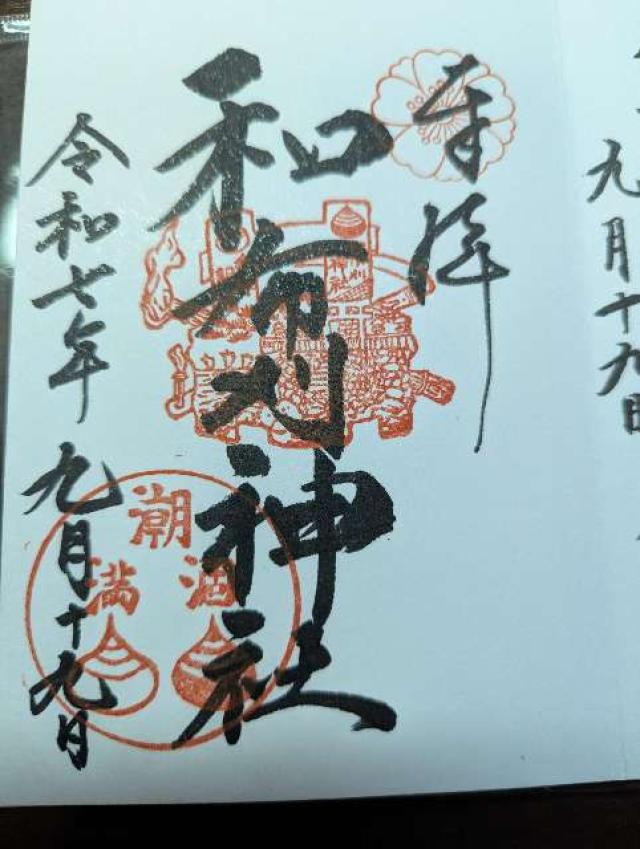 九月十九日
奉拝
和布刈神社
令和七年
九月十九日
潮
満 涸
神社